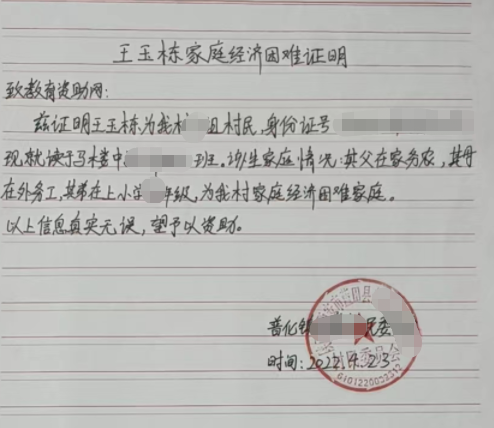 王玉栋家庭经济困难证明
致教育资助网:
兹证明王玉栋,为我村 组村民,身份证号
现就读于马楼中 班。该生家庭情况:其父在家务农,其母
在外务工,其弟在上小学 年级,为我村家庭经济困难家庭。
以上信息真实无误,望予以资助。
普化镇 民委
时间:2022.4.23
蓝田县
村民委员会